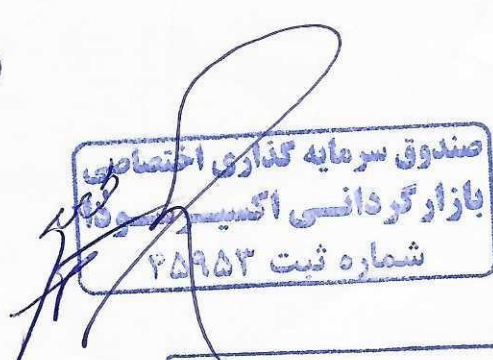 صندوق سرمایه گذاری اختصاصی
بازارگردانی اکسیر سودا
شماره ثبت ۴۵۹۵۳